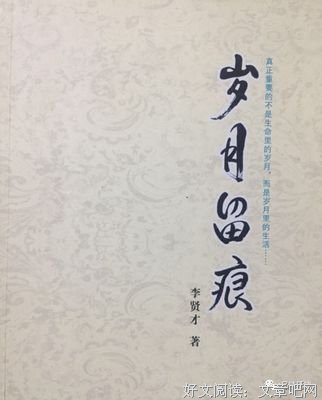 真正重要的不是生命里的岁月，而是岁月里的生活……
岁月留痕
李贤才 著
好文阅读：文章吧网